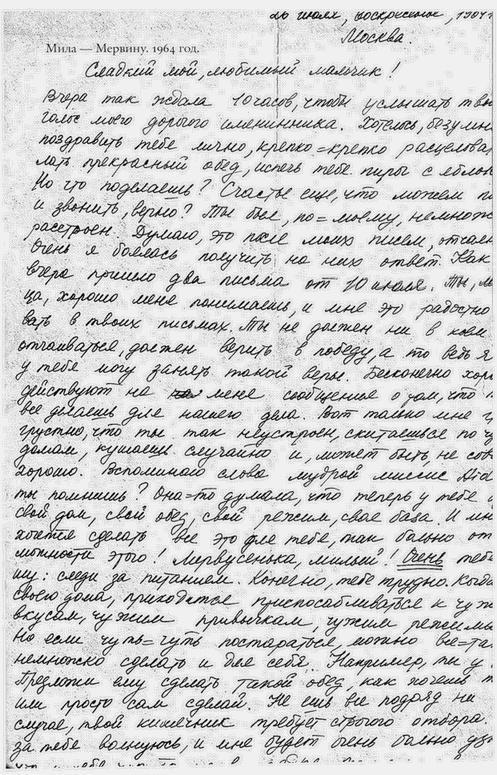 26 июля, воскресенье, 1964
Мила — Мервину. 1964 год.
Москва.
Сладкий мой, любимый мальчик!
Вчера так ждала 10 часов, чтобы услышать
голос моего дорогого именинника. Хотелось, безумн
поздравить тебя лично, крепко=крепко расцеловат
лать прекрасный обед, испечь тебе пирог с яблок
Но что поделаешь? Счастье еще, что можем п
и звонить, верно? Ты был, по=моему, немножк
расстроен. Думаю, это после моих писем, отчаен
Очень я боялась получить на них ответ. Как
вчера пришло два письма от 10 июля. Ты, м
ца, хорошо меня понимаешь, и мне это радостно
вать в твоих письмах. Ты не должен ни в коем
отчаиваться, должен верить в победу, а то ведь я
у тебя могу занять такой веры. Бесконечно хоро
действуют на меня сообщение о том, что
все делаешь для нашего дела. Вот только мне
грустно, что ты так неустроен, скитаешься по ч
домам, кушаешь случайно и, может быть, не сов
хорошо. Вспоминаю слова мудрой миссис
ты помнишь? Она=то думала, что теперь у тебя
свой дом, свой обед, свой режим, своя база. И мн
хочется сделать все это для тебя, так больно от
можности этого! Мервусенька, милый! Очень тебя
шу: следи за питанием. Конечно, тебе трудно. Когда
своего дома, приходится приспосабливаться к чуж
вкусам, чужим привычкам, чужим режимам
Но если чуть=чуть постараться, можно все=та
немножко сделать и для себя. Например, ты у
Предложи ему сделать такой обед, как хочешь т
или просто сам сделай. Не ешь все подряд ни
случае, твой кишечник требует строгого отбора.
за тебя волнуюсь, и мне будет очень больно